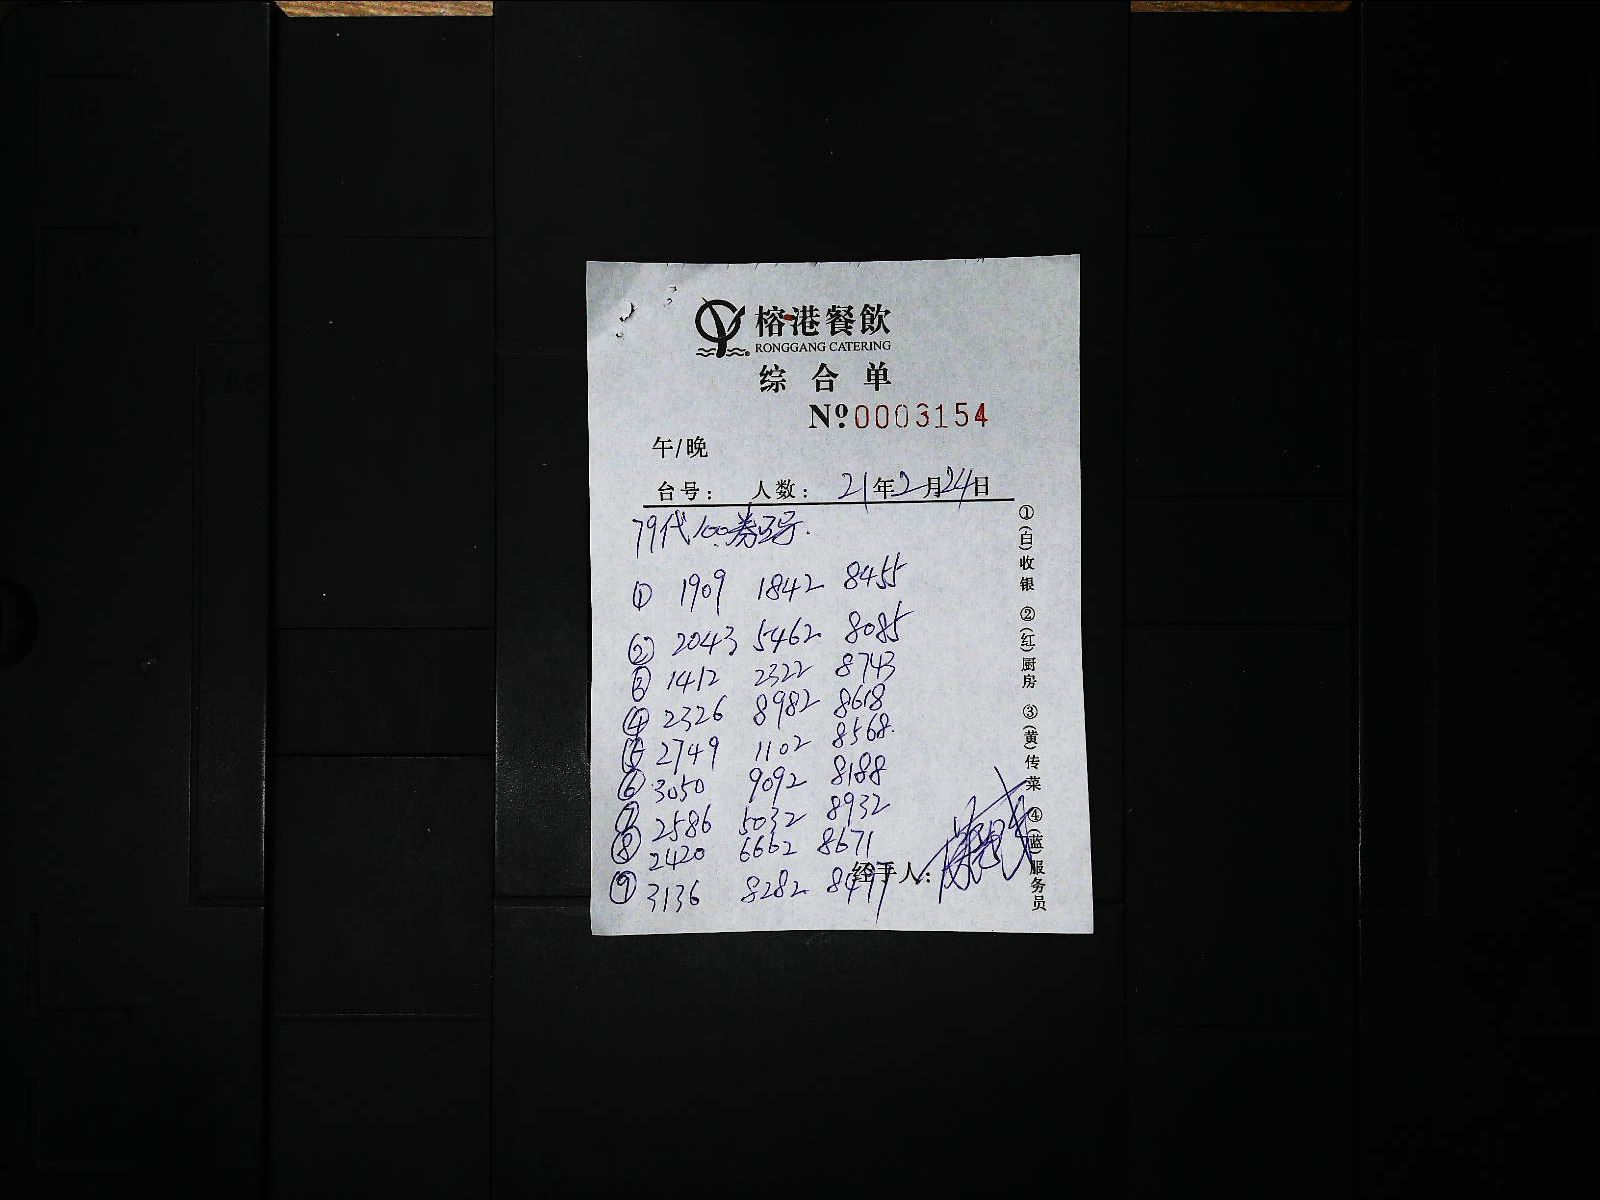 榕港餐飲
RONGGANG CATERING
综合单
Nº:0003154
午/晚
台号: 人数: 21年2月24日
79代100券3号.
① 1909 1842 8455
② 2043 5462 8085
③ 1412 2322 8743
④ 2326 8982 8618
⑤ 2749 1102 8568.
⑥ 3050 9092 8188
⑦ 2586 5032 8932
⑧ 2420 6662 8671
⑨ 3136 8282
经手人:
①(白)收银 ②(红)厨房 ③(黄)传菜 ④(蓝)服务员